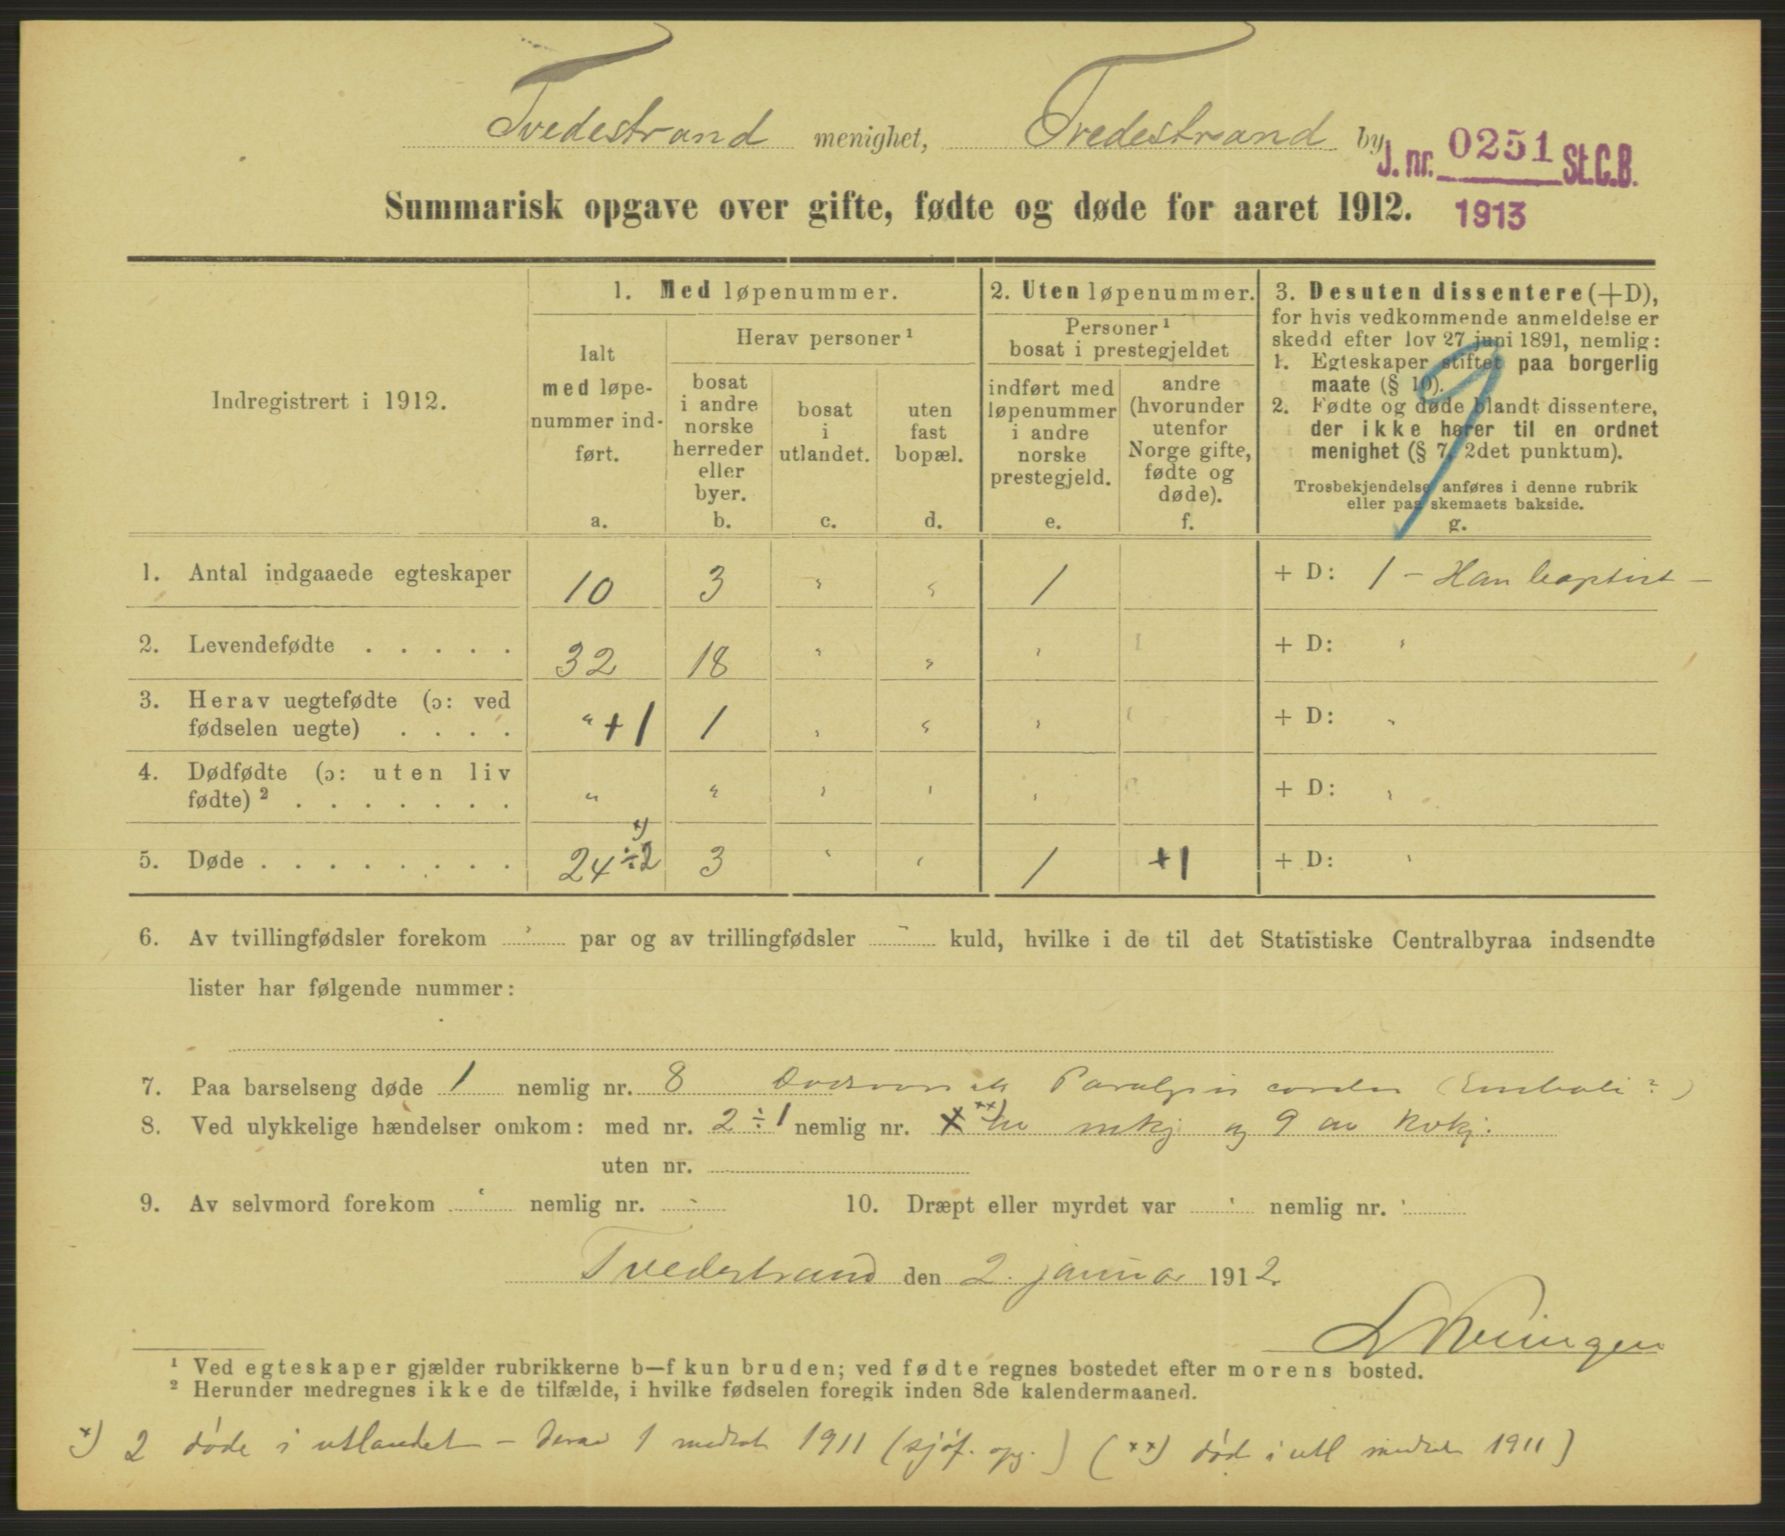 Tvedestrand menighet, Tvedestrand by
J. nr. 0251 St.C.B.
1913
Summarisk opgave over gifte, fødte og døde for aaret 1912.
Indregistrert i 1912.
1. Med løpenummer.
Ialt
med løpe-
nummer ind-
ført.
a.
Herav personer ¹
bosat
i andre
norske
herreder
eller
byer.
b.
bosat
i
utlandet.
c.
uten
fast
bopæl.
d.
2. Uten løpenummer.
Personer ¹
bosat i prestegjeldet
indført med
løpenummer
i andre
norske
prestegjeld.
e.
andre
(hvorunder
utenfor
Norge gifte,
fødte og
døde).
f.
3. Desuten dissentere (+D),
for hvis vedkommende anmeldelse er
skedd efter lov 27 juni 1891, nemlig:
1. Egteskaper stiftet paa borgerlig
maate (§ 10).
2. Fødte og døde blandt dissentere,
der ikke hører til en ordnet
menighet (§ 7, 2det punktum).
Trosbekjendelse anføres i denne rubrik
eller paa skemaets bakside.
g.
9
1. Antal indgaaede egteskaper 10 3 " " 1 + D: 1 – Han baptist –
2. Levendefødte . . . . . 32 18 " " " + D: "
3. Herav uegtefødte (ɔ: ved
fødselen uegte) . . . . " +1 1 " " " + D: "
4. Dødfødte (ɔ: uten liv
fødte) ² . . . . . . . " " " " " + D: "
5. Døde . . . . . . . . 24 ÷2 *) 3 " " 1 +1 + D: "
6. Av tvillingfødsler forekom " par og av trillingfødsler " kuld, hvilke i de til det Statistiske Centralbyraa indsendte
lister har følgende nummer:
7. Paa barselseng døde 1 nemlig nr. 8 Paralysis cordis (Emboli?)
8. Ved ulykkelige hændelser omkom: med nr. 2 ÷1 nemlig nr. **) mkj og 9 av kvkj.
uten nr.
9. Av selvmord forekom " nemlig nr. " 10. Dræpt eller myrdet var " nemlig nr. "
Tvedestrand den 2. januar 1912
¹ Ved egteskaper gjælder rubrikkerne b—f kun bruden; ved fødte regnes bostedet efter morens bosted.
² Herunder medregnes ikke de tilfælde, i hvilke fødselen foregik inden 8de kalendermaaned.
*) 2 døde i utlandet – derav 1 medtat 1911 (sjöf. opg.) (**) død i utl medtat 1911)